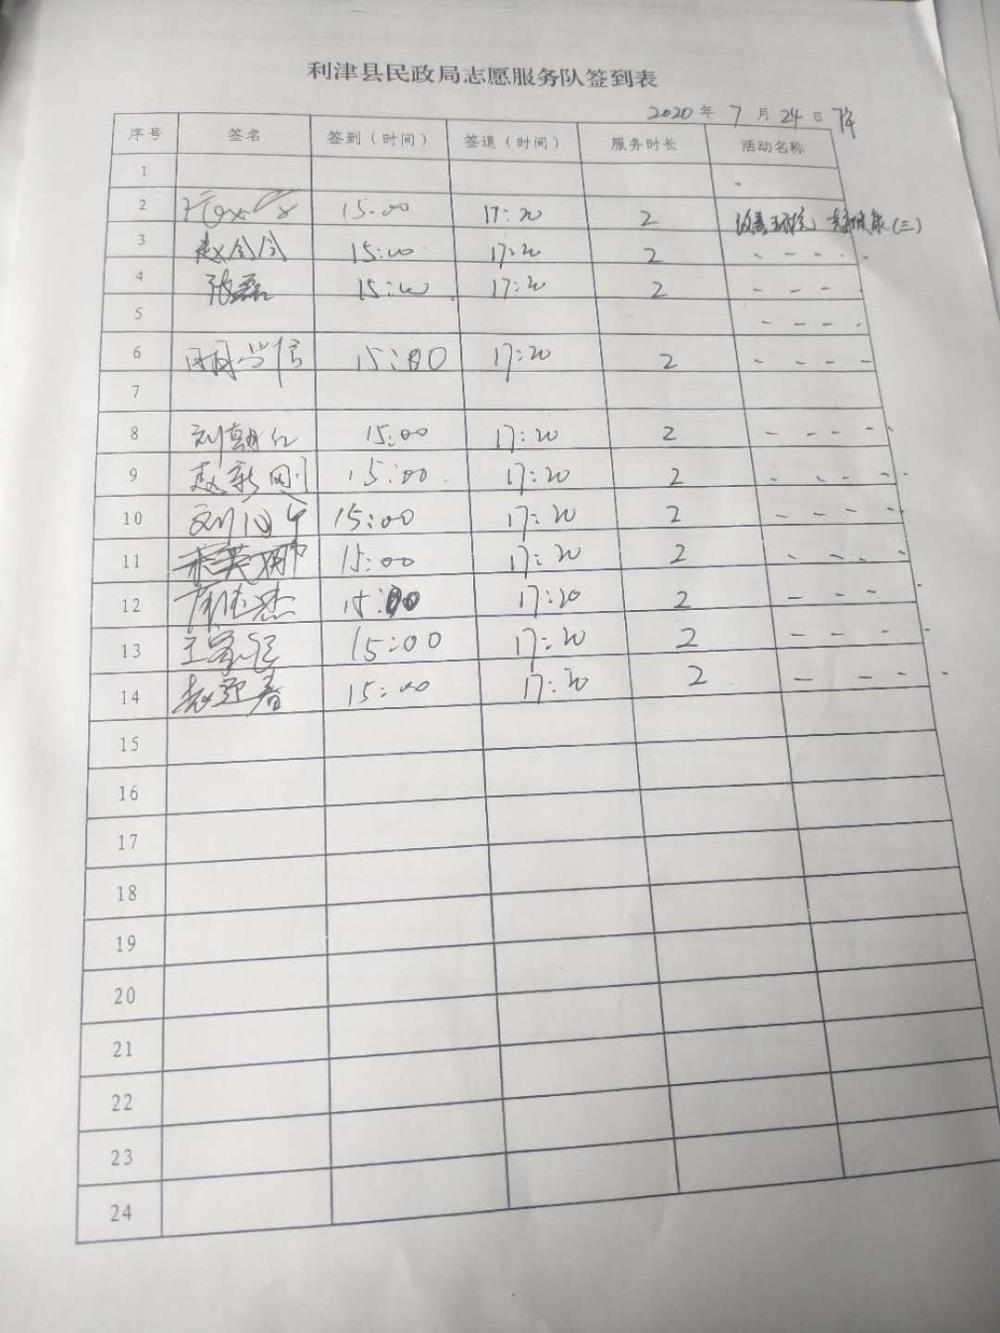 利津县民政局志愿服务队签到表
2020年 7月 24日
序号 签名 签到（时间） 签退（时间） 服务时长 活动名称
1
2 15:00 17:20 2 改善环境 (三)
3 赵会会 15:00 17:20 2 - - - -
4 张磊 15:00 17:20 2 - - -
5 - - - -
6 15:00 17:20 2 - - - -
7
8 刘朝红 15:00 17:20 2 - - - -
9 赵新刚 15:00 17:20 2 - - - -
10 15:00 17:20 2 - - - -
11 15:00 17:20 2 - - - -
12 15:00 17:20 2 - - - -
13 15:00 17:20 2 - - - -
14 赵迎春 15:00 17:20 2 - - - -
15
16
17
18
19
20
21
22
23
24